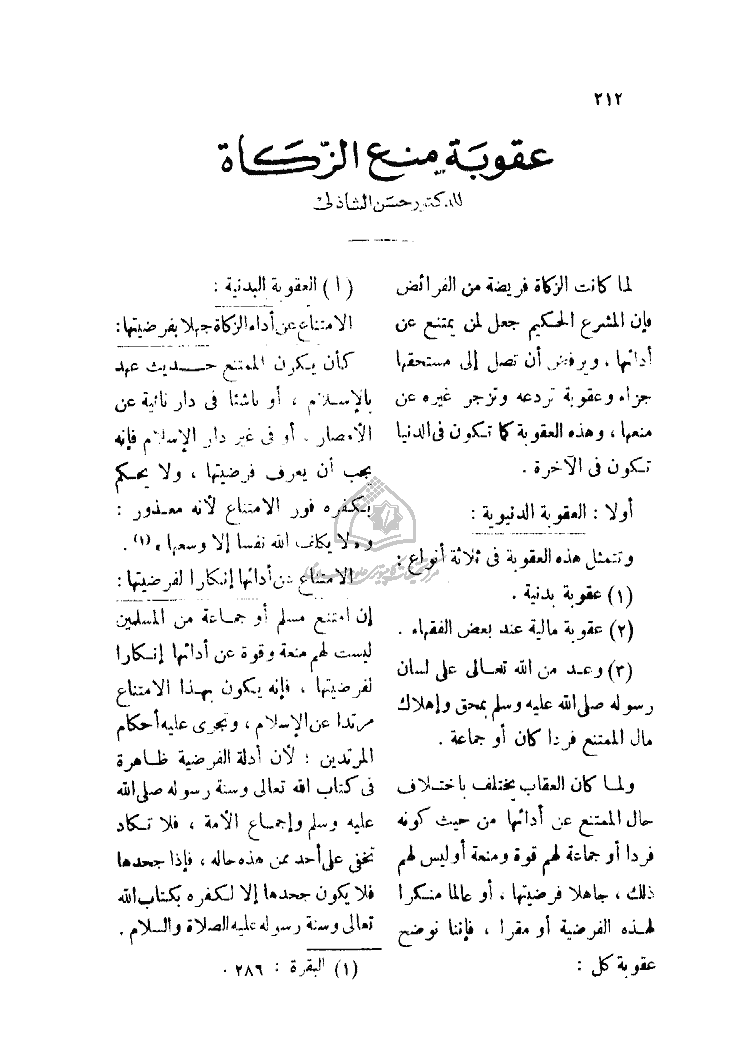 ٢١٢
عقوبة منع الزكاة
للدكتور حسن الشاذلى
لما كانت الزكاة فريضة من الفرائض
فإن المشرع الحكيم جعل لمن يمتنع عن
أدائها ، ويرفض أن تصل إلى مستحقها
جزاء وعقوبة تردعه وتزجر غيره عن
منعها ، وهذه العقوبة كما تكون فى الدنيا
تكون فى الآخرة .
أولا : العقوبة الدنيوية :
وتتمثل هذه العقوبة فى ثلاثة أنواع :
(١) عقوبة بدنية .
(٢) عقوبة مالية عند بعض الفقهاء .
(٣) وعد من الله تعالى على لسان
رسوله صلى الله عليه وسلم بمحق وإهلاك
مال الممتنع فردا كان أو جماعة .
ولما كان العقاب يختلف باختلاف
حال الممتنع عن أدائها من حيث كونه
فردا أو جماعة لهم قوة ومنعة أوليس لهم
ذلك ، جاهلا فرضيتها ، أو عالما منكرا
لهذه الفرضية أو مقرا ، فإننا نوضح
عقوبة كل :
( ا ) العقوبة البدنية :
الامتناع عن أداء الزكاة جهلا بفرضيتها :
كأن يكون الممتنع حديث عهد
بالإسلام ، أو ناشئا فى دار نائية عن
الأمصار ، أو فى غير دار الإسلام فإنه
يجب أن يعرف فرضيتها ، ولا يحكم
بكفره فور الامتناع لأنه معذور :
و « لا يكلف الله نفسا إلا وسعها » (١) .
الامتناع عن أدائها إنكارا لفرضيتها :
إن امتنع مسلم أو جماعة من المسلمين
ليست لهم منعة وقوة عن أدائها إنكارا
لفرضيتها ، فإنه يكون بهذا الامتناع
مرتدا عن الإسلام ، وتجرى عليه أحكام
المرتدين ؛ لأن أدلة الفرضية ظاهرة
فى كتاب الله تعالى وسنة رسوله صلى الله
عليه وسلم وإجماع الأمة ، فلا تكاد
تخفى على أحد ممن هذه حاله ، فإذا جحدها
فلا يكون جحدها إلا لكفره بكتاب الله
تعالى وسنة رسوله عليه الصلاة والسلام .
(١) البقرة : ٢٨٦ .